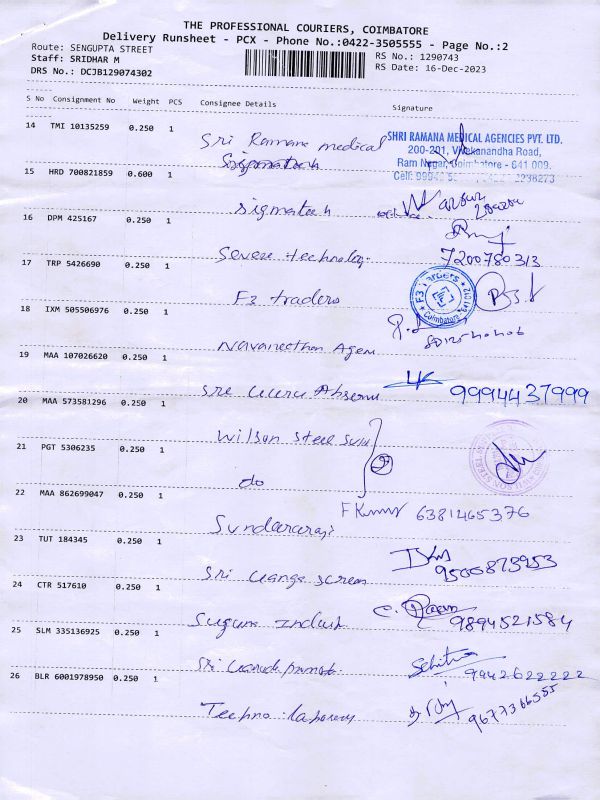 THE PROFESSIONAL COURIERS, COIMBATORE
Delivery Runsheet - PCX - Phone No.:0422-3505555 - Page No.:2
Route: SENGUPTA STREET
RS No.: 1290743
Staff: SRIDHAR M
RS Date: 16-Dec-2023
DRS No.: DCJB129074302
S No Consignment No Weight PCS Consignee Details Signature
14 TMI 10135259 0.250 1 Sri Ramana medical
SHRI RAMANA MEDICAL AGENCIES PVT. LTD.
200-201, Vivekanandha Road,
Ram Nagar, Coimbatore - 641 009.
15 HRD 700821859 0.600 1 Sigmatech
16 DPM 425167 0.250 1 Severe technology
7200780313
17 TRP 5426690 0.250 1 F3 traders
F3 Traders
Coimbatore
18 IXM 505506976 0.250 1 Navaneethan Agen
19 MAA 107026620 0.250 1 Sre
9994437999
20 MAA 573581296 0.250 1 Wilson Steel
21 PGT 5306235 0.250 1 do
22 MAA 862699047 0.250 1 Sundararaj
F Kumar 6381465376
23 TUT 184345 0.250 1 Sri Ganga Screen
9500873953
24 CTR 517610 0.250 1 Suguna Indust
9894521584
25 SLM 335136925 0.250 1 Sri
9942622222
26 BLR 6001978950 0.250 1 Techno
9677366555